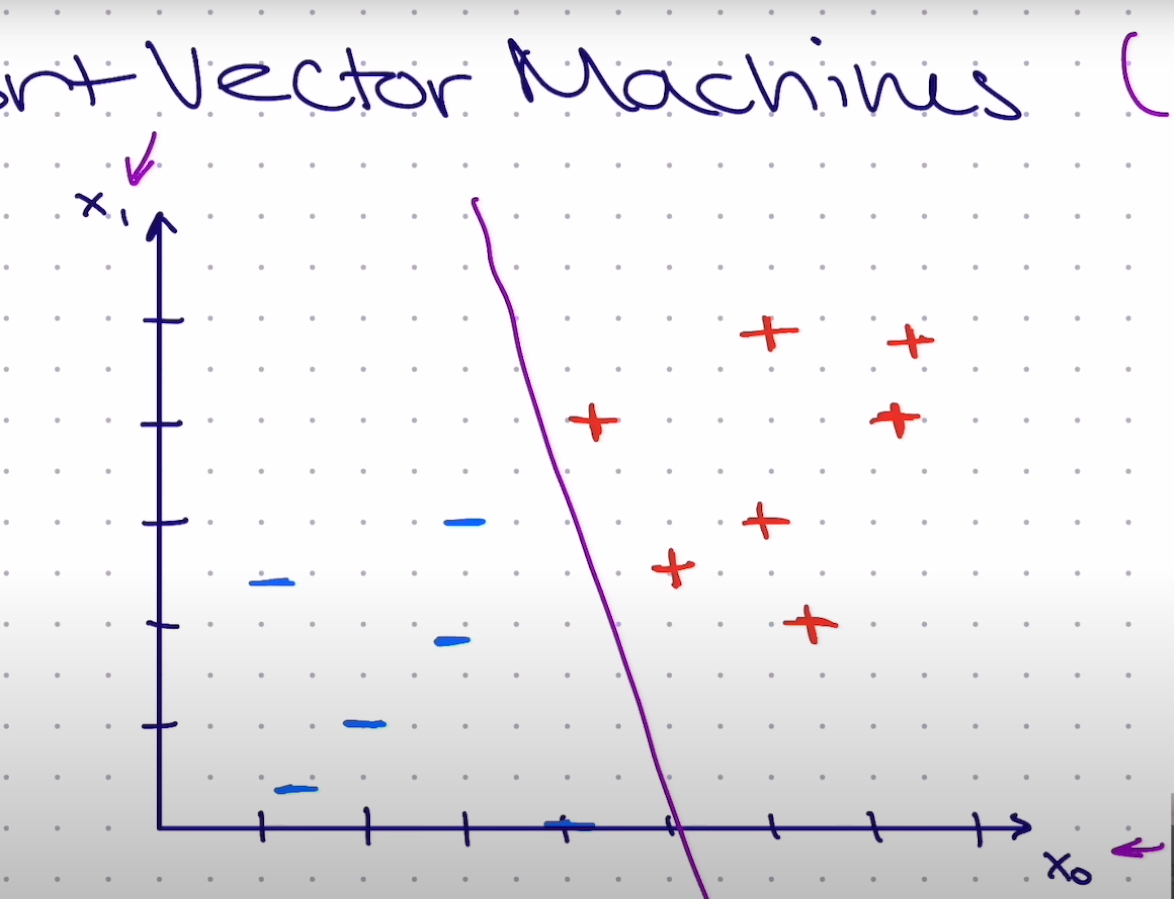 ort Vector Machines (
x₁
+ +
+ +
- +
- +
- +
-
-
-
x₀